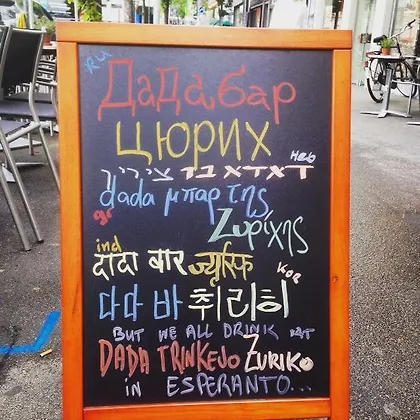 RU
Дада бар
ЦЮРИХ
Heb
דאדא בר ציריך
dada μπαρ της
gr
Ζυρίχης
ind
दादा बार ज्यूरिक
Kor
다다 바 취리히
BUT WE ALL DRINK AT
DADA TRINKEJO ZURIKO
in ESPERANTO...